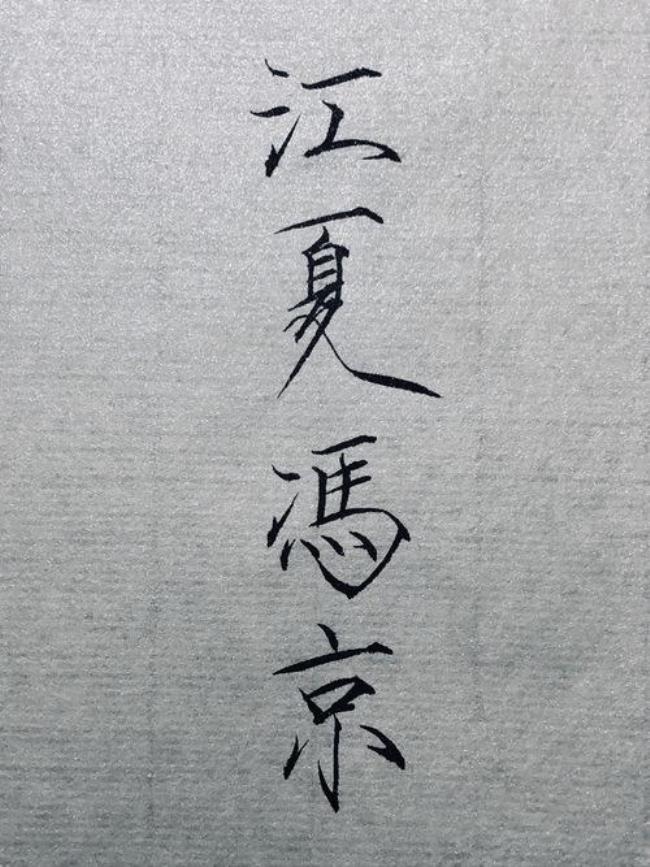 江夏馮京